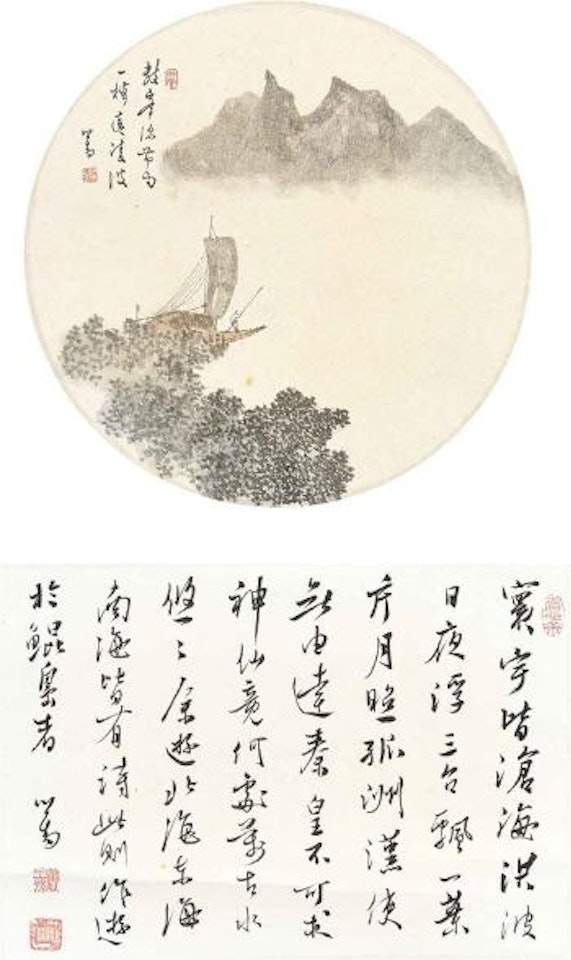 一棹遠凌波
心畬
寰宇皆滄海洪波
日夜浮三台飄一葉
片月照孤洲漢使
無由達秦皇不可求
神仙竟何處萬古水
悠〻余遊北海東海
南海皆有詩此則作遊
於鯤島者 心畬